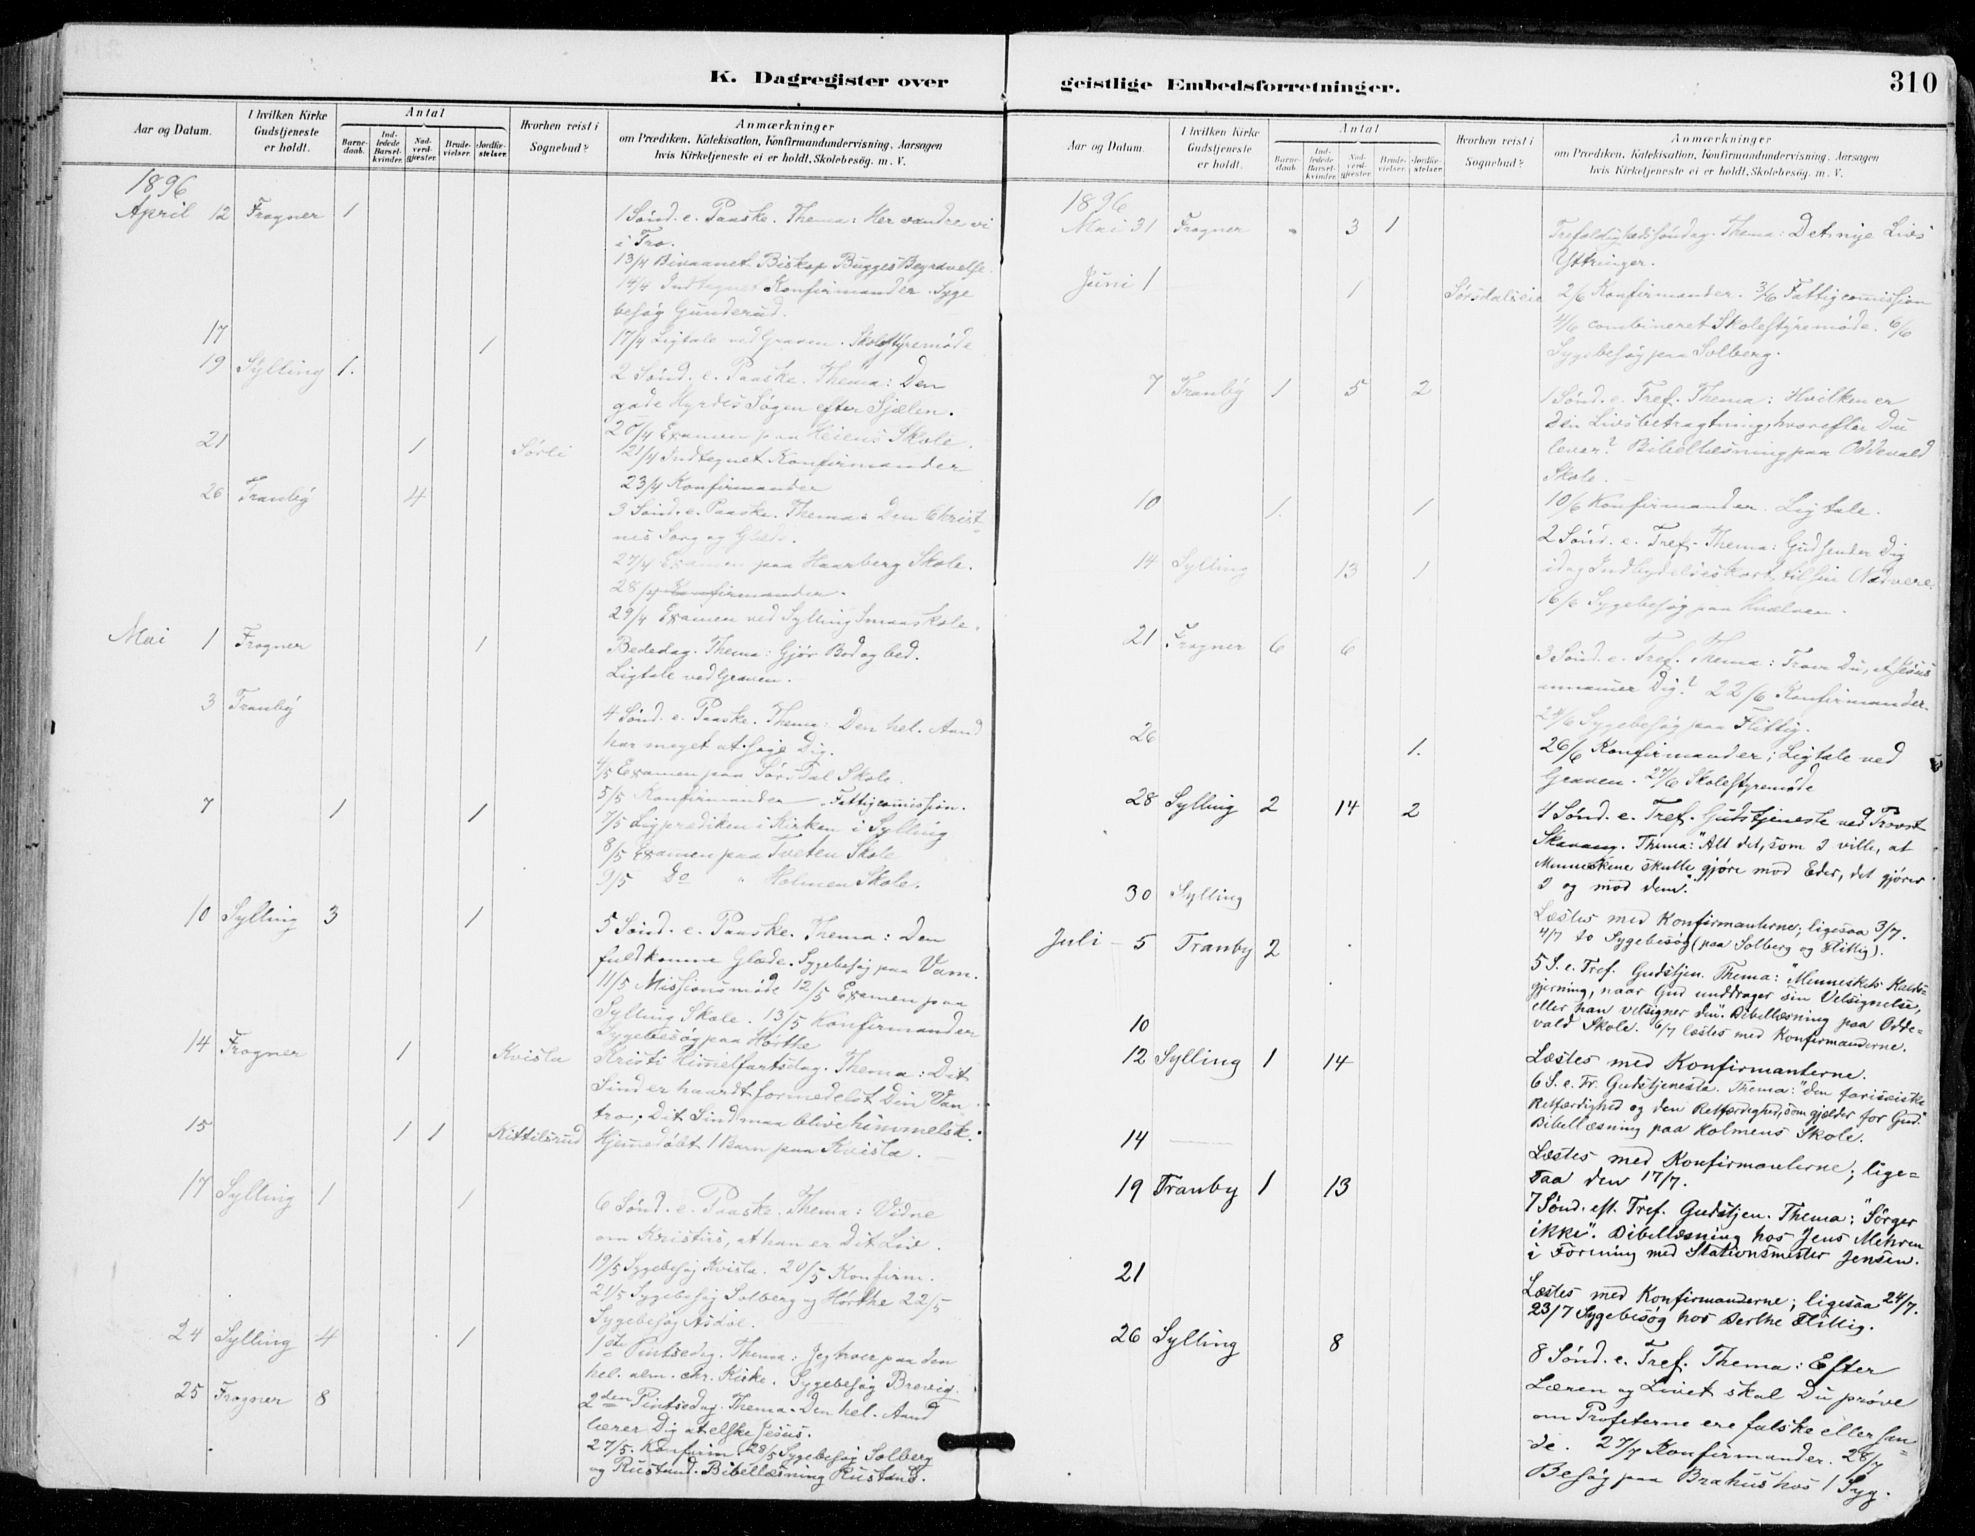 K. Dagregister over
geistlige Embedsforretninger.
310
Aar og Datum.
I hvilken Kirke Gudstjeneste er holdt.
Antal
Barne-daab.
Ind-ledede Barsel-kvinder.
Nad-verd-gjester.
Brude-vielser.
Jordfæ-stelser.
Hvorhen reist i Sognebud?
Anmærkninger
om Prædiken, Katekisation, Konfirmandundervisning, Aarsagen
hvis Kirketjeneste ei er holdt, Skolebesøg. m. V.
1896
April 12 Frogner 1 1 Sønd. e. Paaske. Thema: Her vandre vi
i Tro.
13/4 Bivaanet Biskop Bugges Begravelse.
14/4 Indtegnet Konfirmander. Syge
besøg Gunderud.
17 1 17/4 Ligtale ved Graven. Skolestyremøde
19 Sylling 1. 2 Sønd. e. Paaske. Thema: Den
gode Hyrdes Søgen efter Sjælen.
20/4 Examen paa Heiens Skole.
21 1 Sørli 21/4 Indtegnet Konfirmander
23/4 Konfirmander
26 Tranby 4 3 Sønd. e. Paaske. Thema: Den Christ-
nes Sorg og Glæde.
27/4 Examen paa Haarberg Skole.
28/4 Konfirmander.
29/4 Examen ved Sylling Smaaskole.
Mai 1 Frogner 1 Bededag. Thema: Gjør Bod og bed.
Ligtale ved Graven.
3 Tranby 4 Sønd. e. Paaske. Thema: Den hel. Aand
har meget at sige Dig.
4/5 Examen paa Sørsdal Skole.
5/5 Konfirmander. Fattigcommission.
7 1 1 7/5 Ligprædiken i Kirken i Sylling
8/5 Examen paa Tveten Skole
9/5 Do " Holmen Skole.
10 Sylling 3 1 5 Sønd. e. Paaske. Thema: Den
fuldkomne Glæde. Sygebesøg paa Vam.
11/5 Missionsmøde 12/5 Examen paa
Sylling Skole. 13/5 Konfirmander
Sygebesøg paa Horthe
14 Frogner 1 Kvisla Kristi Himelfartsdag. Thema: Dit
Sind er haardt formedelst Din Van-
tro; Dit Sind maa blive himmelsk.
15 1 1 Kittilsrud Hjemedøbt 1 Barn paa Kvisla.
17 Sylling 1 1 6 Sønd. e. Paaske. Thema: Vidne
om Kristus, at han er Dit Liv.
19/5 Sygebesøg Kvisla. 20/5 Konfirm.
21/5 Sygebesøg Solberg og Horthe 22/5
Sygebesøg Asdøl.
24 Sylling 4 1 1ste Pintsedag. Thema: Jeg troer paa den
hel. alm. chr. Kirke. Sygebesøg Brevig.
25 Frogner 8 2den Pintsedag. Thema: Den hel. Aand
lærer Dig at elske Jesus.
27/5. Konfirm 28/5 Sygebesøg Solberg
og Rustand. Bibellæsning Rustand.
Aar og Datum.
I hvilken Kirke Gudstjeneste er holdt.
Antal
Barne-daab.
Ind-ledede Barsel-kvinder.
Nad-verd-gjester.
Brude-vielser.
Jordfæ-stelser.
Hvorhen reist i Sognebud?
Anmærkninger
om Prædiken, Katekisation, Konfirmandundervisning, Aarsagen
hvis Kirketjeneste ei er holdt, Skolebesøg. m. V.
1896
Mai 31 Frogner 3 1 Trefoldighedssøndag. Thema: Det nye Livs
Yttringer.
Juni 1 1 Sørsdalseie 2/6 Konfirmander. 3/6 Fattigcommission
4/6 combineret Skolestyremøde. 6/6
Sygebesøg paa Solberg.
7 Tranby 1 5 2 1 Sønd. e. Tref. Thema: Hvilken er
din Livsbetragtning, hvorefter Du
lever? Bibellæsning paa Oddevald
Skole.
10 1. 1 10/6 Konfirmander. Ligtale.
14 Sylling 13 1 2 Sønd. e. Tref. Thema: Gud sender Dig
idag Indbydelseskort til sin Nadvere.
16/6 Sygebesøg paa Hvalven.
21 Frogner 6 6 3 Sønd. e. Tref. Thema: Trove Du, at Jesus
annamer Dig? 22/6 Konfirmander.
24/6 Sygebesøg paa Flittig.
26 1. 26/6 Konfirmander; Ligtale ved
Graven. 27/6 Skolestyremøde
28 Sylling 2 14 2 4 Sønd. e. Tref. Gudstjeneste ved Provst
Skavang. Thema: "Alt det, som I ville, at
Menneskene skulle gjøre mod Eder, det gjører
I og mod dem".
30 Sylling Læstes med Konfirmanterne; ligesaa 3/7.
4/7 to Sygebesøg (paa Solberg og Flittig).
Juli - 5 Tranby 2 5 S. e. Tref. Gudstjen. Thema: "Menneskets Kalds-
gjerning, naar Gud unddrager sin Velsignelse,
eller han velsigner den". Bibellæsning paa Odde-
vald Skole. 6/7 læstes med Konfirmanderne.
10 Læstes med Konfirmanterne.
12 Sylling 1 14 6 S. e. Tr. Gudstjeneste. Thema: "Den fariseiske
Retfærdighed og den Retfærdighed, som gjælder for Gud."
Bibellæsning paa Holmens Skole.
14 Læstes med Konfirmanterne; lige-
saa den 17/7.
19 Tranby 1 13 7 Sønd. eft. Tref. Gudstjen. Thema: "Sørger
ikke". Bibellæsning hos Jens Mehren
i Forening med Stationsmester Jensen.
21 Læstes med Konfirmanderne; ligesaa 24/7.
23/7 Sygebesøg hos Berthe Flittig.
26 Sylling 8 8 Sønd. e. Tref. Thema: Efter
Læren og Livet skal Du prøve
om Profeterne ere falske eller san-
de. 27/7 Konfirmander. 28/7
Besøg paa Brahus hos 1 Syg.